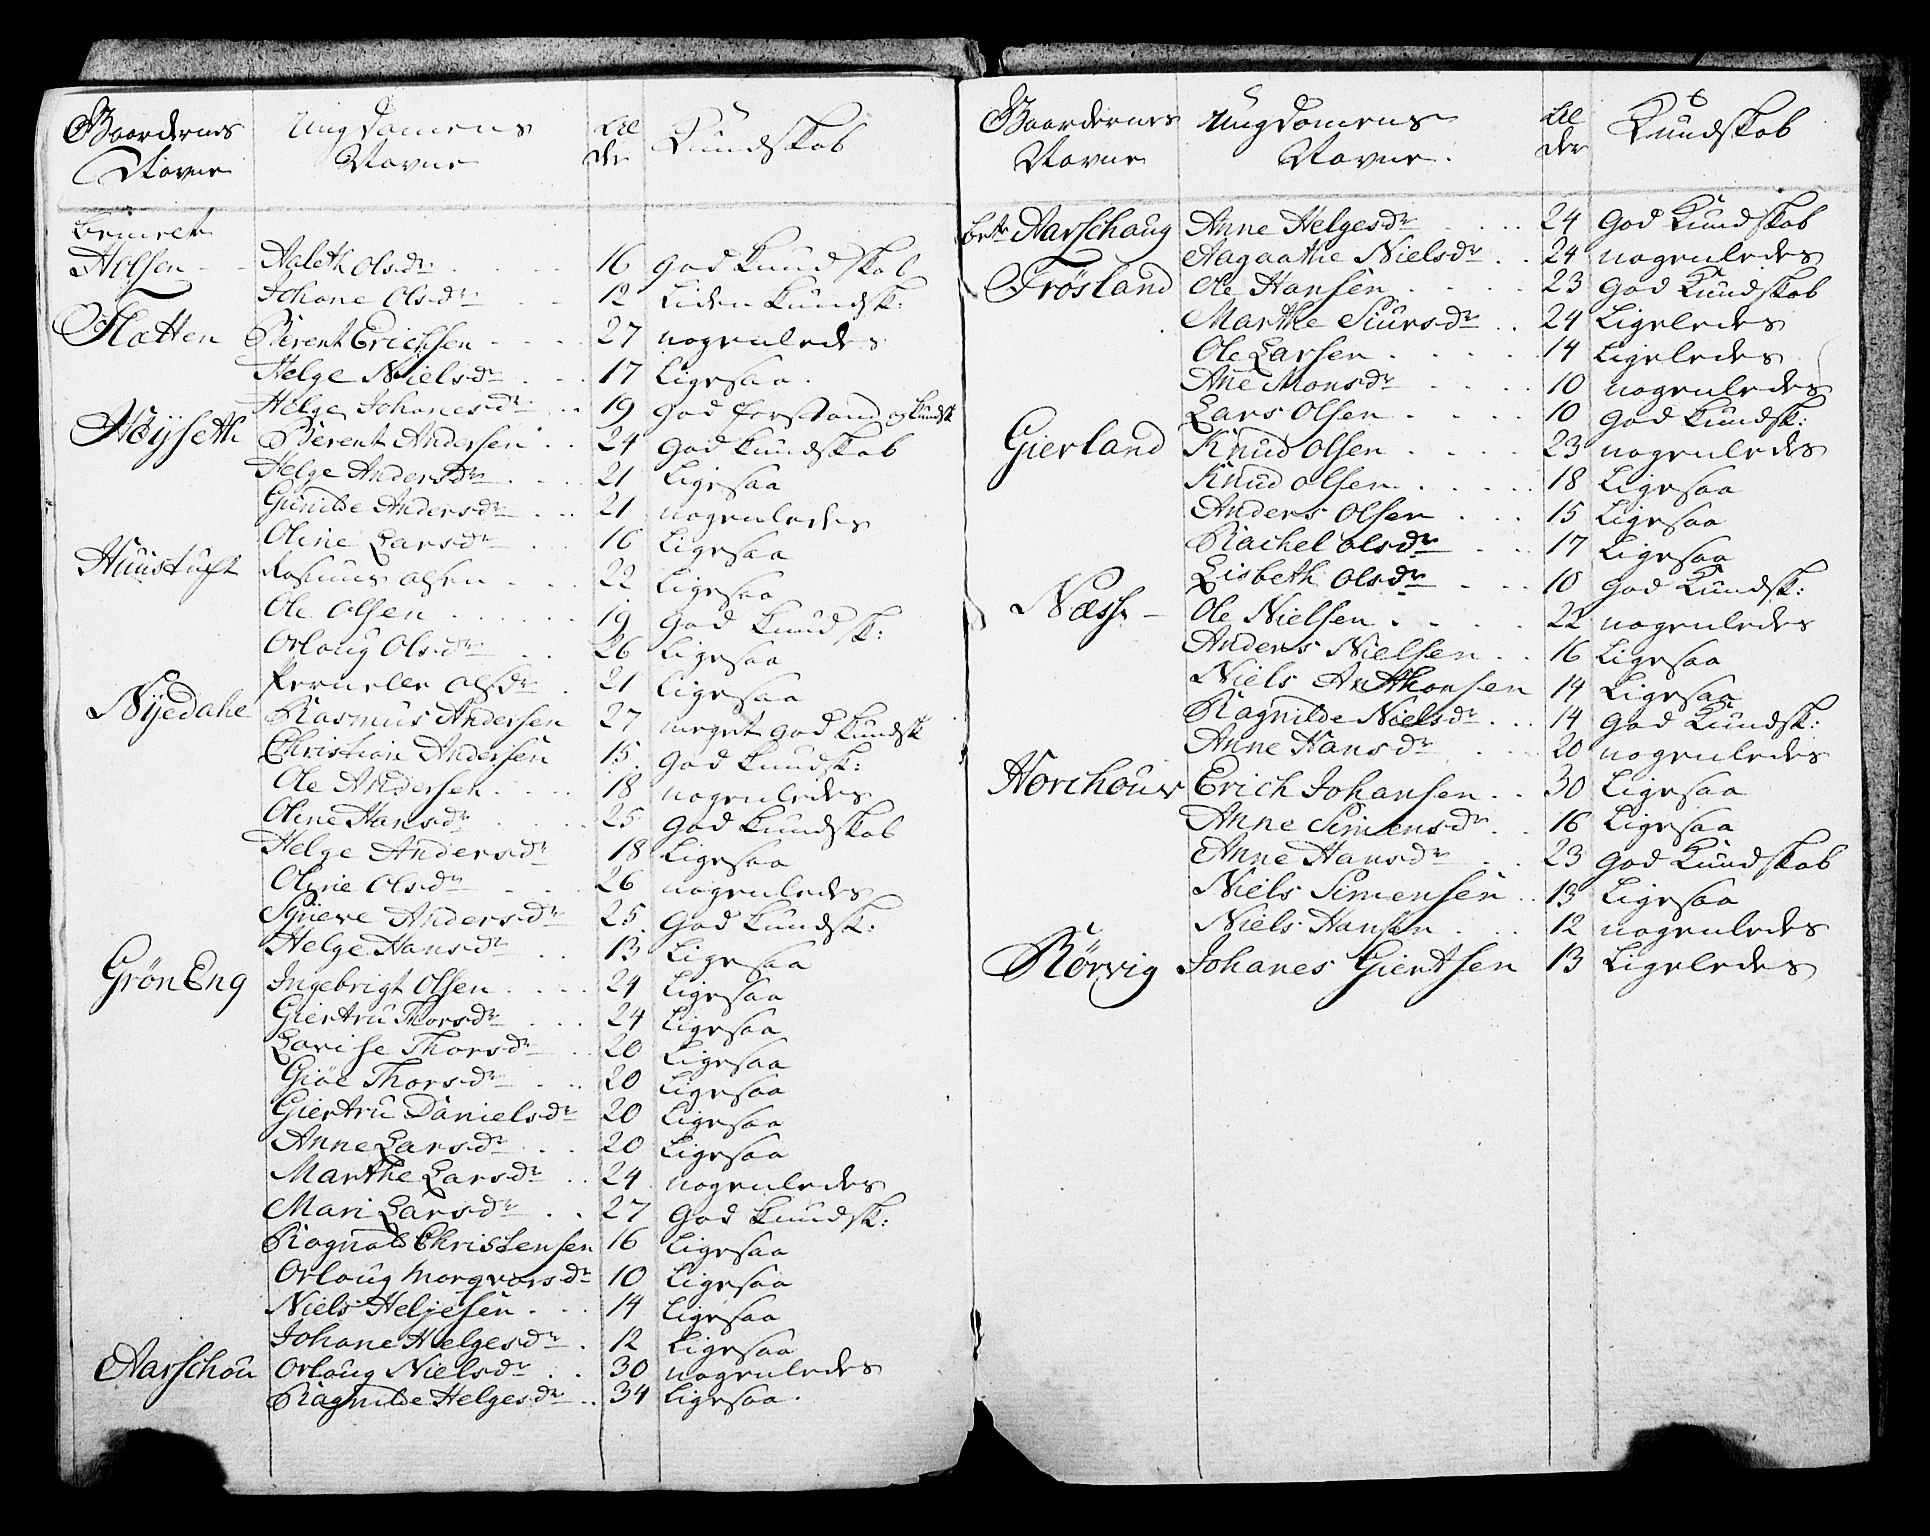 Gaardernes Ungdomens Al Kundskab
Navne Navne der
Holsen Aaleth Olsdr 16 god Kundskab
Johane Olsdr 12 Liden Kundsk:
Flatten Berent Erichsen 27 nogenledes
Helge Nielsdr 17 Ligesaa
Helge Johanesdr 19 god forstand og Kundsk
Høyseth Berent Andersen 24 god Kundskab
Helge Andersdr 21 Ligesaa
Gunilde Andersdr 21 nogenledes
Oline Larsdr 16 Ligesaa
Huustuft Rasmus Olsen 22 Ligesaa
Ole Olsen 19 god Kundsk:
Orloug Olsdr 26 Ligesaa
Pernelle Olsdr 21 Ligesaa
Nÿedahe Rasmus Andersen 27 meget god Kundsk
Christian Andersen 15 god Kundsk:
Ole Andersen 18 nogenledes
Oline Hansdr 25 god Kundskab
Helge Andersdr 18 Ligesaa
Oline Olsdr 26 nogenledes
Synneve Andersdr 25 god Kundsk:
Helge Hansdr 13 Ligesaa
Grøn Eng Ingebrigt Olsen 24 Ligesaa
Giertru Thorsdr 24 Ligesaa
Lovise Thorsdr 20 Ligesaa
Giøe Thorsdr 20 Ligesaa
Giertru Danielsdr 20 Ligesaa
Anne Larsdr 20 Ligesaa
Marthe Larsdr 24 nogenledes
Mari Larsdr 27 god Kundsk:
Ragnald Christensen 16 Ligesaa
Orloug 10 Ligesaa
Niels Heljesen 14 Ligesaa
Johane Helgesdr 12 Ligesaa
Aarschou Orloug Nielsdr 30 nogenledes
Ragnilde Helgesdr 34 Ligesaa.
Gaardernes Ungdomens Al Kundskab
Navne Navne. der
Aarschoug Anne Helgesdr 24 god Kundskab
Aagaathe Nielsdr 24 nogenledes
Frøsland Ole Hansen 23 god Kundskab
Marthe Siursdr 24 Ligeledes
Ole Larsen 14 Ligeledes
Añe Monsdr 10 nogenledes
Lars Olsen 10 god Kundsk:
Gierland Knud Olsen 23 nogenledes
Knud Olsen 18 Ligesaa
Anders Olsen 15 Ligesaa
Rachel Olsdr 17 Ligesaa
Lisbeth Olsdr 10 god Kundsk:
Næss Ole Nielsen 22 nogenledes
Anders Nielsen 16 Ligesaa
Niels Anthonsen 14 Ligesaa
Ragnilde Nielsdr 14 god Kundsk:
Anne Hansdr 20 nogenledes
Horchouv Erich Johansen 30 Ligesaa
Anne Simensdr 16 Ligesaa
Anne Hansdr 23 god Kundskab
Niels Simensen 13 Ligesaa
Niels Hansen 12 nogenledes
Rørvig Johanes Giertsen 13 Ligeledes